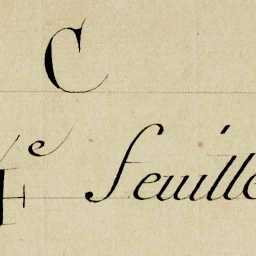 C
4e feuille